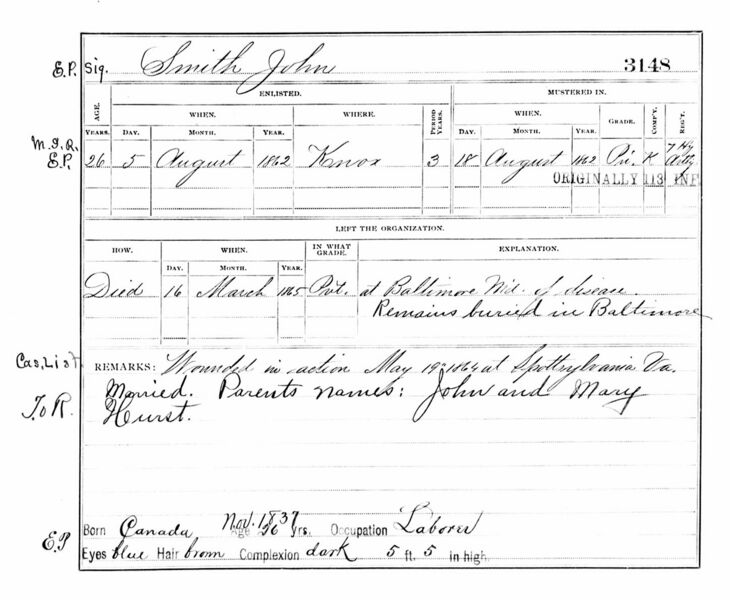 E.P. Sig. Smith John 3148
ENLISTED. MUSTERED IN.
AGE. WHEN. WHERE. PERIOD YEARS. WHEN. GRADE. COMP'Y. REG'T.
YEARS. DAY. MONTH. YEAR. DAY. MONTH. YEAR.
M.I.R.
E.P. 26 5 August 1862 Knox 3 18 August 1862 Pri. K 7 Hy Arty
ORIGINALLY 113 INF
LEFT THE ORGANIZATION.
HOW. WHEN. IN WHAT GRADE. EXPLANATION.
DAY. MONTH. YEAR.
Died 16 March 1865 Pvt. at Baltimore Md. of disease.
Remains buried in Baltimore
Cas. List. REMARKS: Wounded in action May 19" 1864 at Spottsylvania Va.
T.o R. Married. Parents names: John and Mary
Hurst.
Nov. 1837
E.P Born Canada Age 26 yrs. Occupation Laborer
Eyes blue Hair brown Complexion dark 5 ft. 5 in high.